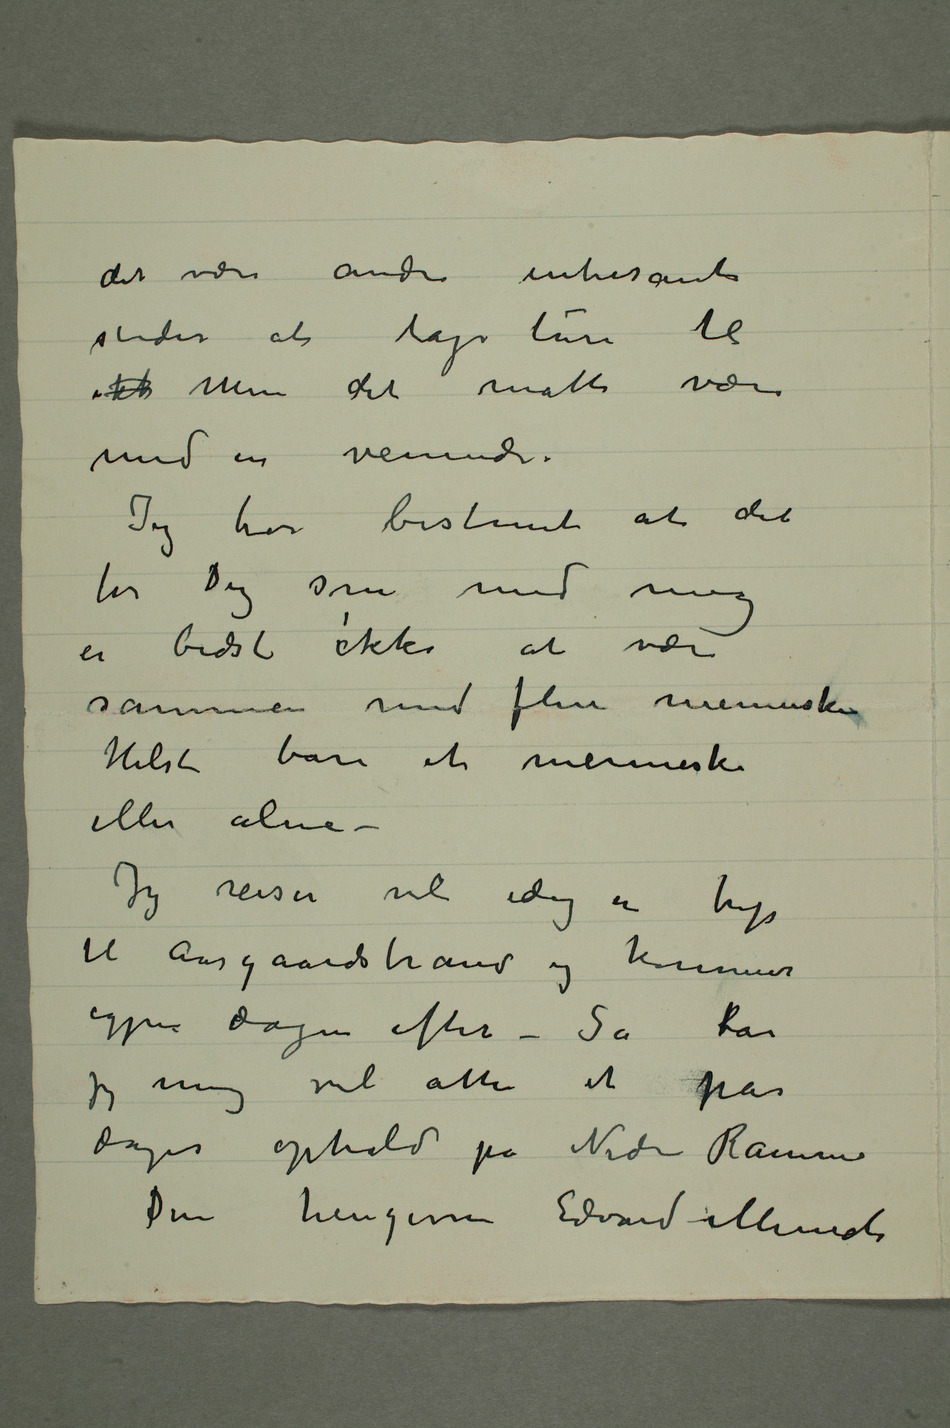 det være andre intresante
steder at tage ture til
Men det måtte være
med en veninde.
Jeg tror bestemt at det
for Dig som med meg
er bedst ikke at være
sammen med flere mennesker
Helst bare et menneske
eller alene –
Jeg reiser vel idag en trip
til Aasgaardstrand og kommer
igjen dagen efter – Så tar
jeg mig vel atter et par
dages ophold på Nedre Ramme
Din hengivne Edvard Munch